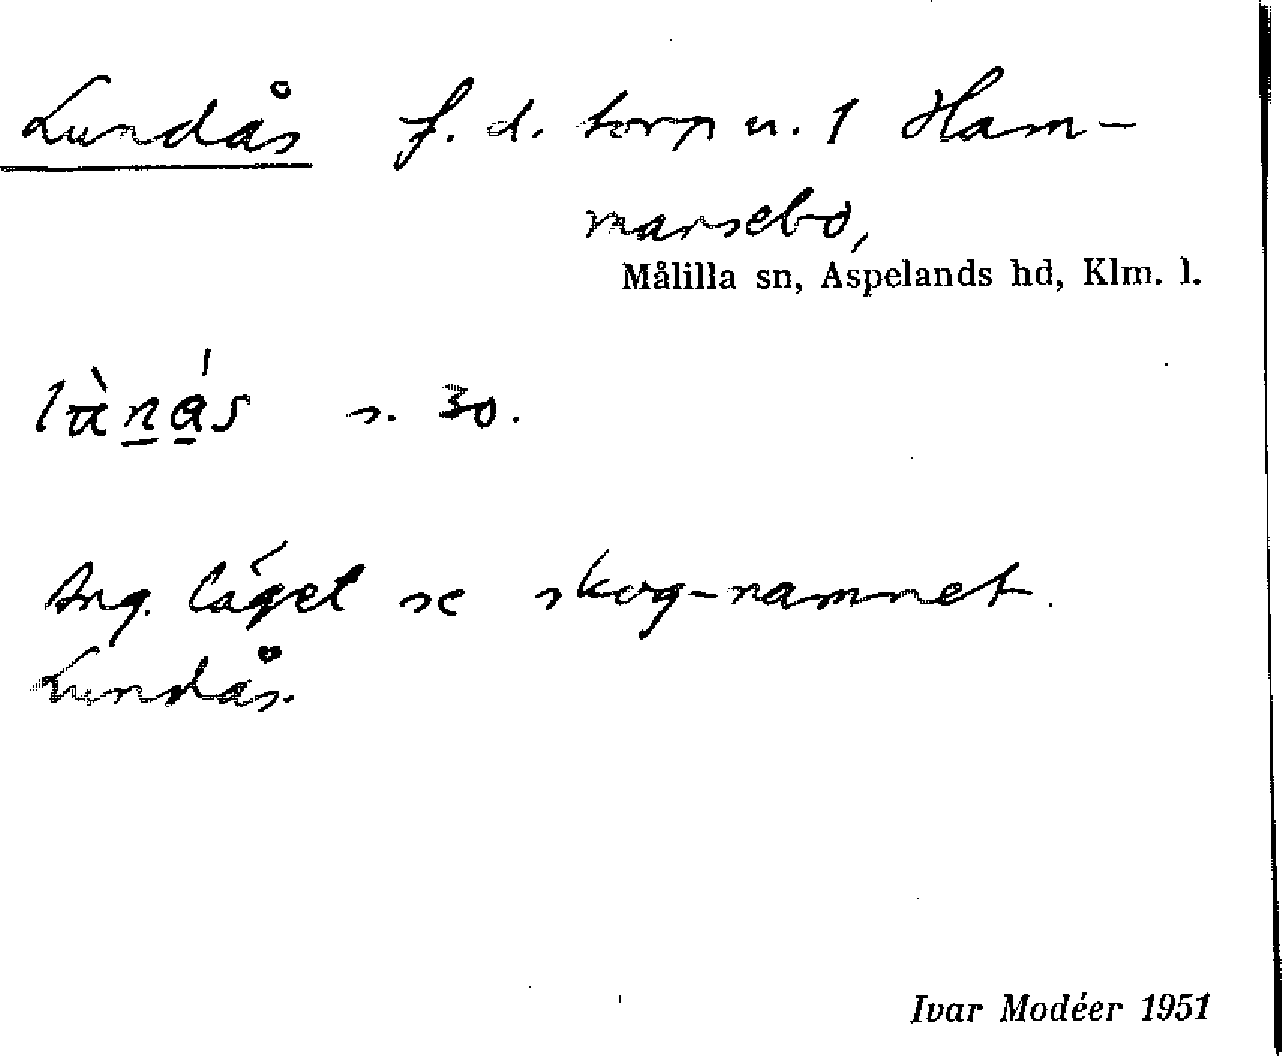 Lundås f. d. torp u. 1 Ham-
marsebo,
Målilla sn, Aspelands hd, Klm. l.
s. 30.
Ang. läget se skog-namnet
Lundås.
Ivar Modéer 1951